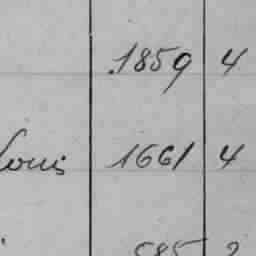 .1859 4
Louis 1661 4
585 2